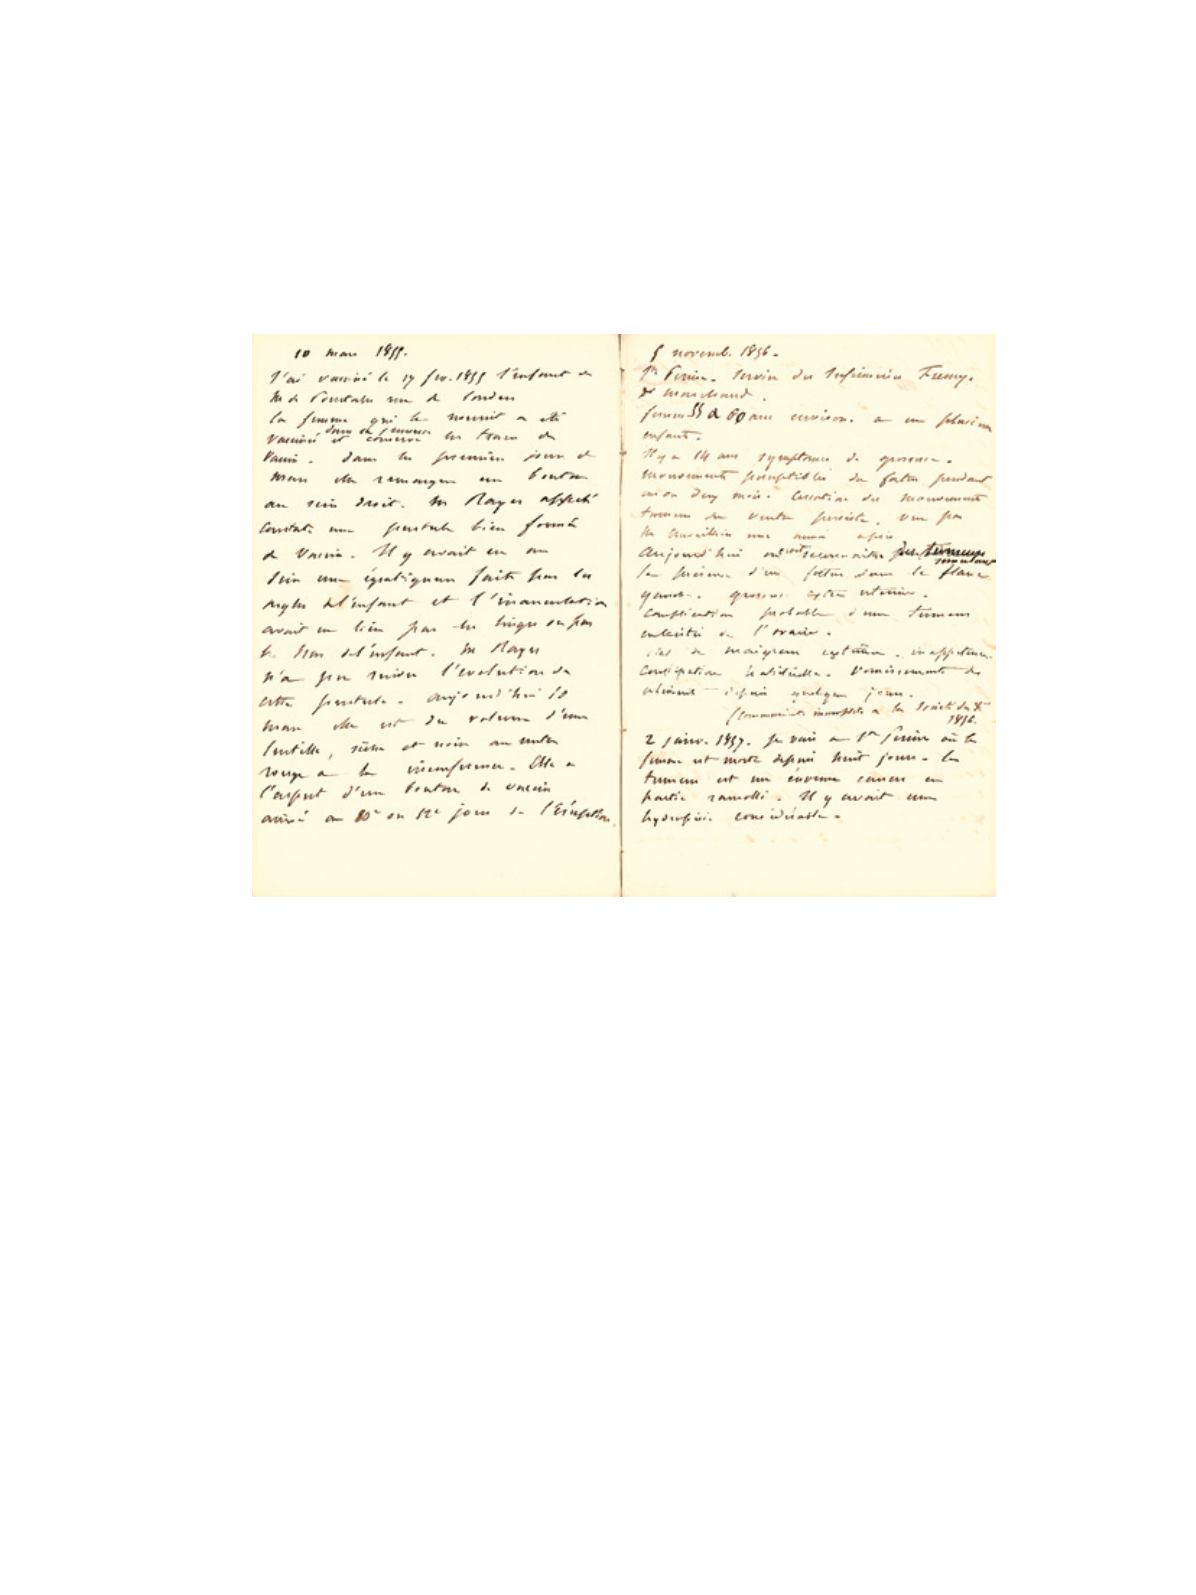 10 mars 1855.
J'ai vacciné le 17 fev. 1855 l'enfant de
M. de rue de Londres
la femme qui le nourrit a été
dans
vacciné et conserve les traces du
vaccin. Dans les premiers jours de
mars elle remarque un bouton
au sein droit. M. Rayer
constate une pustule bien formée
de vaccin. Il y avait eu au
sein une égratignure faite par les
ongles de l'enfant et l'inoculation
avait eu lieu par les linges ou par
le bras de l'enfant. M. Rayer
n'a pu suivre l'évolution de
cette pustule. aujourd'hui 10
mars elle est du volume d'une
lentille, sèche et noire au centre
rouge a la circonférence. Elle a
l'aspect d'un bouton de vaccin
arrivé au 10e ou 12e jour de l'Eruption.
5 novemb. 1856.
Ste Perine. Service des Infirmeries Fremy.
Dr Marchand.
femme 55 a 60 ans environ. a eu plusieurs
enfants.
Il y a 14 ans symptomes de grossesse.
mouvements perceptibles du fœtus pendant
un ou deux mois. Cessation des mouvements
tumeur du ventre persiste. vue par
M. une année après
Aujourd'hui on reconnaître
la présence d'un fœtus dans le flanc
gauche. grossesse extra uterine.
Complication probable d'une tumeur
de l'ovaire.
Etat de maigreur extrême. inappetence.
Constipation habituelle. Vomissements des
aliments depuis quelques jours.
(Communiqué a la Société de
1856.
2 janv. 1857. Je vais a Ste Perine où la
femme est morte depuis huit jours. La
tumeur est un énorme cancer en
partie ramolli. Il y avait une
hydropisie considérable.